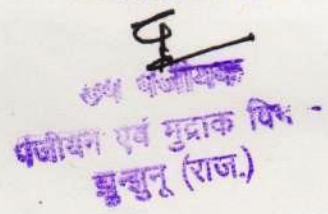 उप पंजीयक
पंजीयन एवं मुद्रांक विभ
झुन्झुनू (राज.)